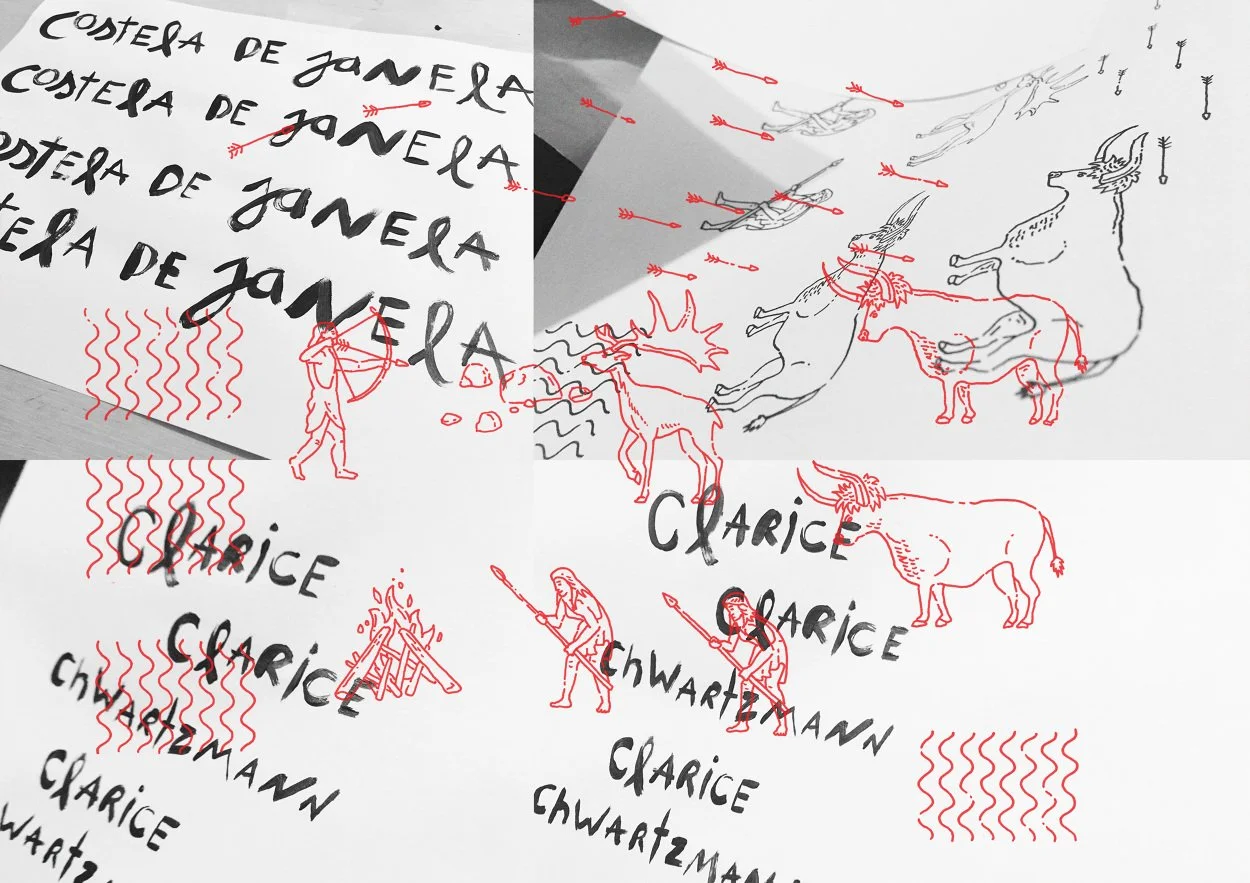 COSTELA DE JANELA
COSTELA DE JANELA
OSTELA DE JANELA
TELA DE JANELA
CLARICE
CLARICE
CHWARTZMANN
CLARICE
WARTZ
CLARICE
CLARICE
CHWARTZMANN
CLARICE
CHWARTZMAN